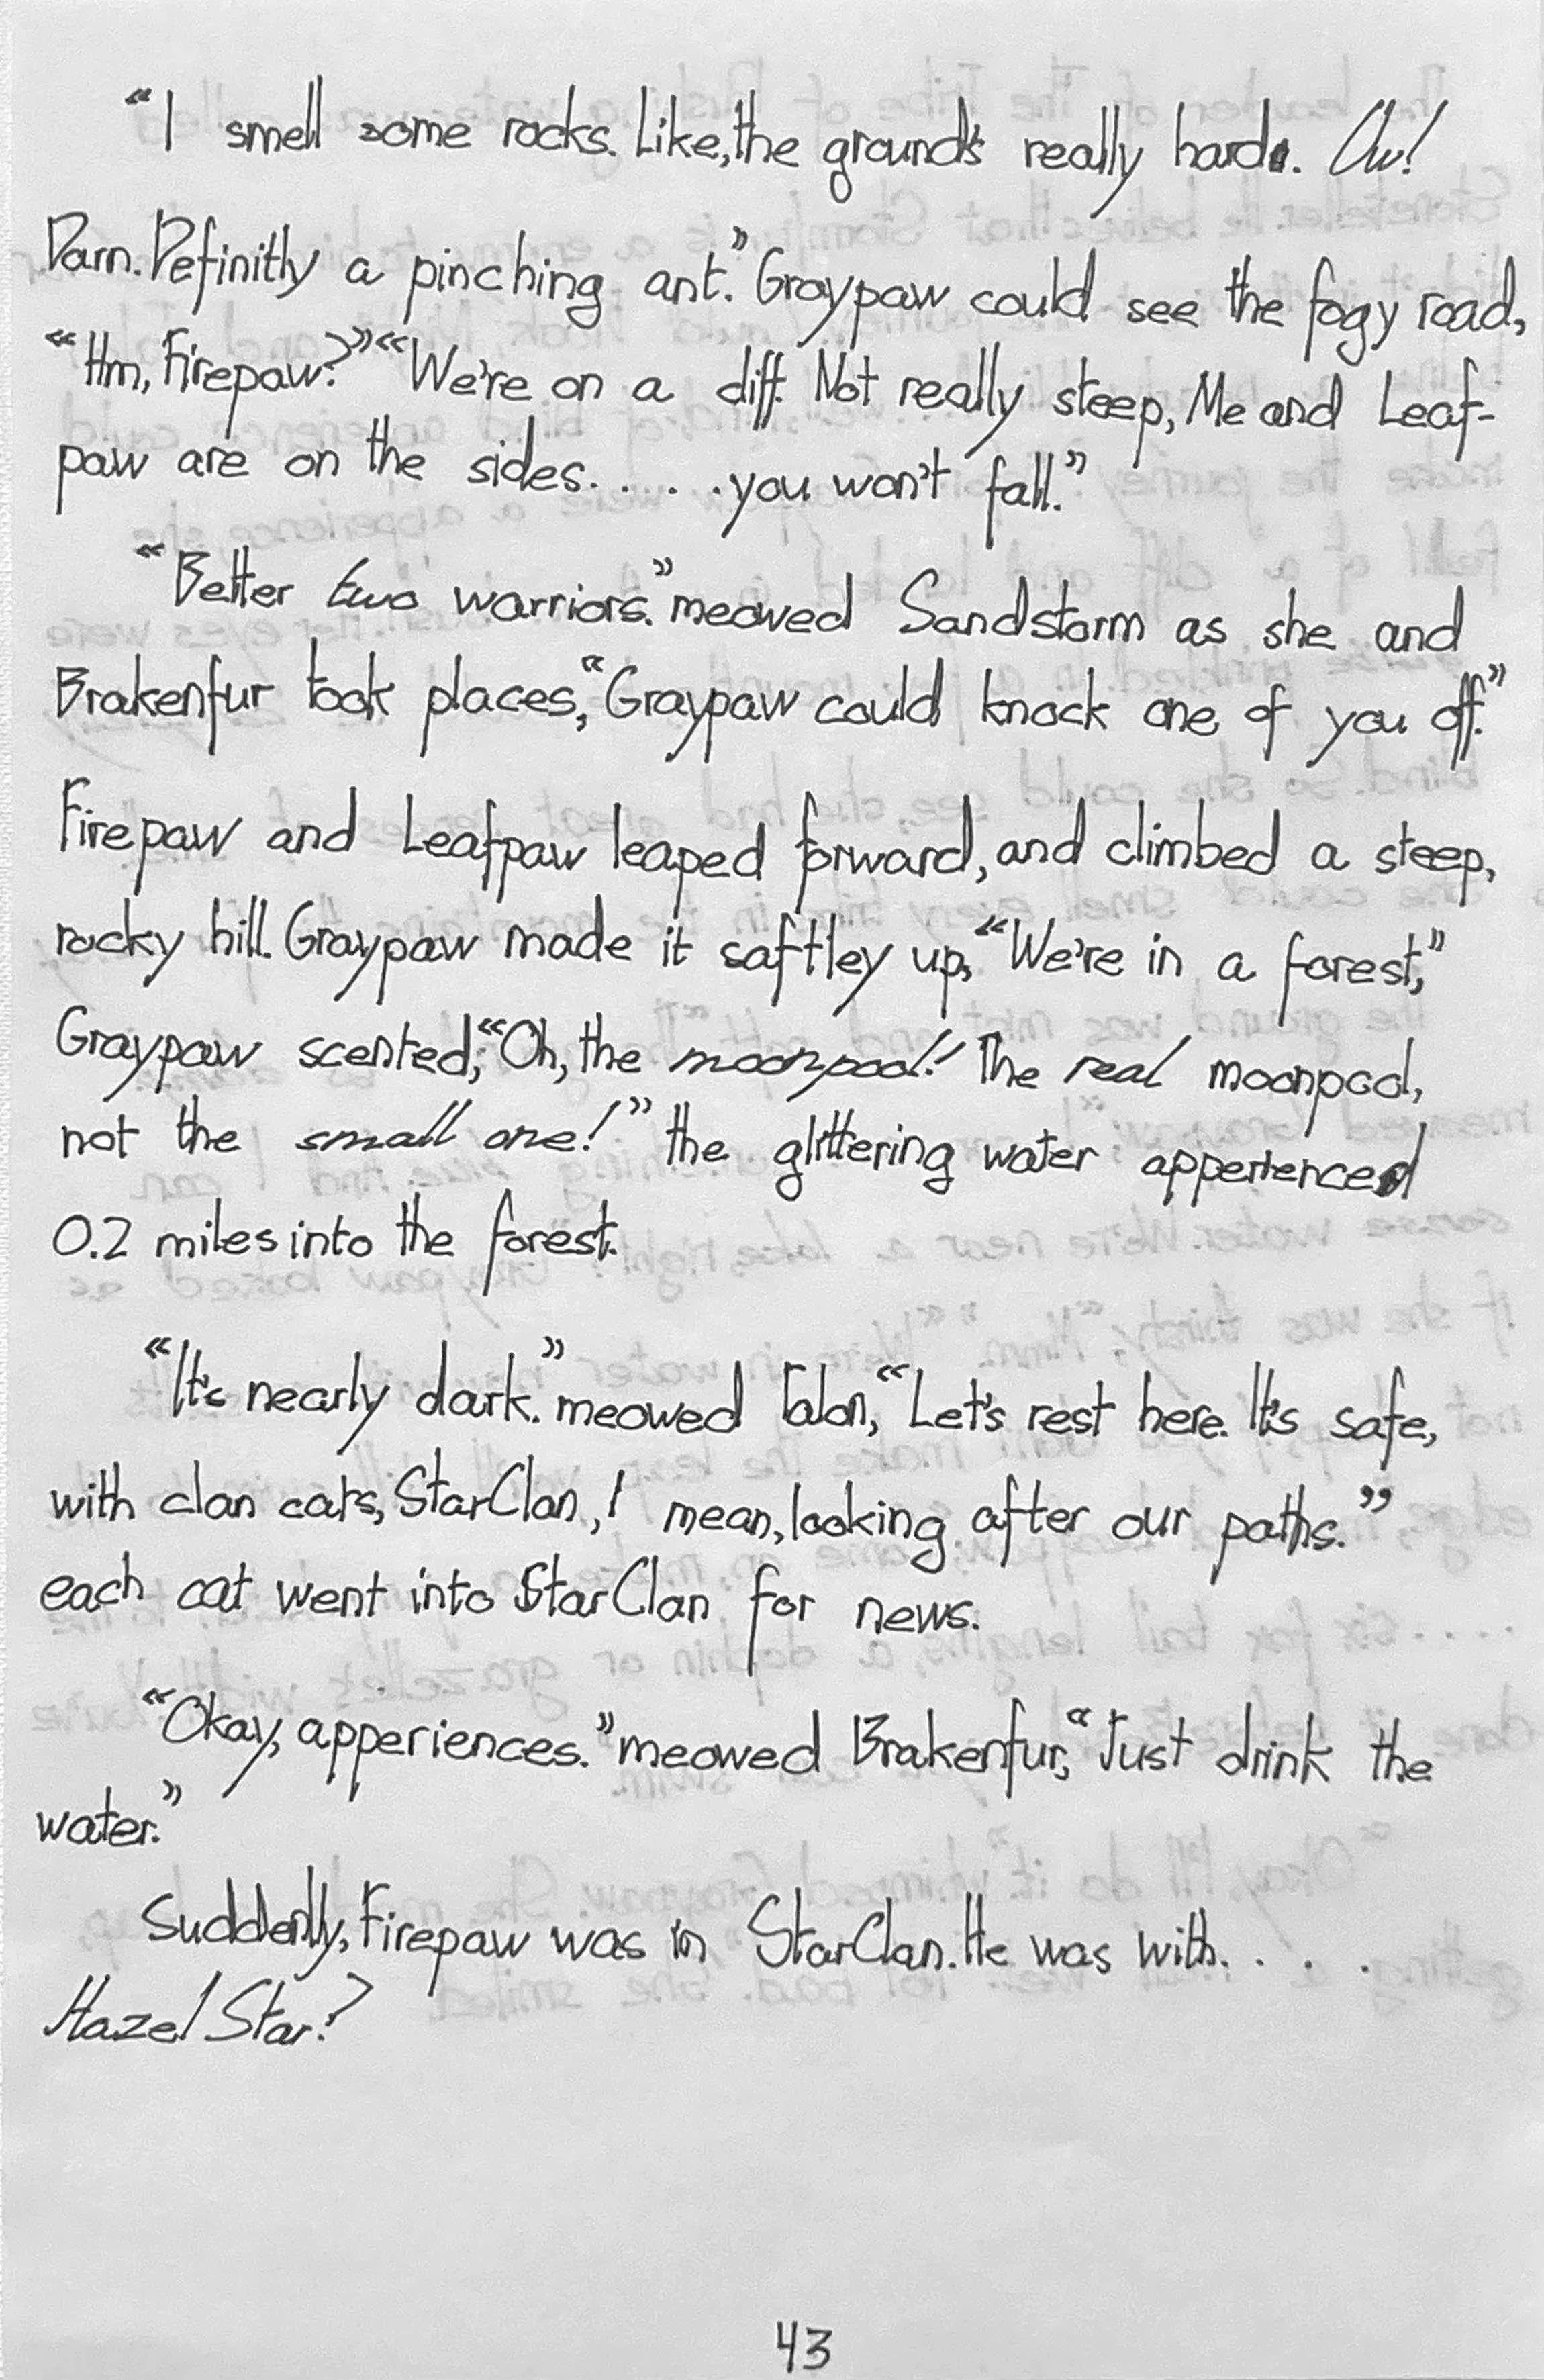 “I smell some rocks. Like, the ground's really hard. Ow!
Darn. Definitly a pinching ant.” Graypaw could see the fogy road,
“Hm, Firepaw?” “We're on a cliff. Not really steep, Me and Leaf-
paw are on the sides. . . . . you won't fall.”
“Better two warriors.” meowed Sandstorm as she and
Brakenfur took places, “Graypaw could knock one of you off.”
Firepaw and Leafpaw leaped forward, and climbed a steep,
rocky hill. Graypaw made it saftley up, “We're in a forest,”
Graypaw scented, “Oh, the moonpool! The real moonpool,
not the small one!” the glittering water apperienced
0.2 miles into the forest.
“It's nearly dark.” meowed Talon, “Let's rest here. It's safe,
with clan cats, StarClan, I mean, looking after our paths.”
each cat went into StarClan for news.
“Okay, apperiences.” meowed Brakenfur, “Just drink the
water.”
Suddenly, Firepaw was in StarClan. He was with. . . .
Hazel Star?
43